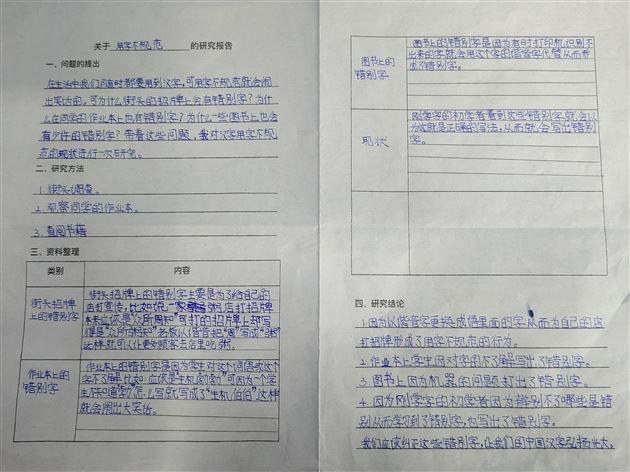 关于 用字不规范 的研究报告
一、问题的提出
在生活中我们随时都要用到汉字,可用字不规范就会闹
出笑话的。可为什么街头的招牌上会有错别字?为什
么在同学的作业本上也有错别字?为什么一些图书上也会
有少许的错别字?带着这些问题,我对汉字用字不规
范的现状进行一次研究。
二、研究方法
1.街头调查。
2.观察同学的作业本。
3.查阅书籍
三、资料整理
类别 内容
街头招牌
上的错别字
街头招牌上的错别字主要是为了给自己的
店打宣传,比如说一家粥店打招牌
本来应该是“众所周知”可打的招牌上却写
得是“众所粥知”老板以谐音把“周”写成“粥”
这样就可以让更多顾客去店里吃粥。
作业本上的
错别字
作业本上的错别字是因为学生对这个词语或这个
字不了解比如:应该是“生机勃勃”可因为一个学
生不知道勃怎么写就写成了“生机伯伯”这样
就会闹出大笑话。
图书上的
错别字
图书上的错别字是因为有时打印机识别不
出来的字就会用这个字的谐音字代替从而形
成了错别字。
现状
刚学字的初学者看到这些错别字就会以
为这就是正确的写法,从而就会写出错别
字。
四、研究结论
1.因为以谐音字更换成语里面的字从而为自己的店
打招牌形成了用字不规范的行为。
2.作业本上学生因对字的不了解写出了错别字。
3.图书上因为机器的问题打出了错别字。
4.因为刚学字的初学者因为辨别不了哪些是错
别从而学习到了错别字,也写出了错别字。
我们应该纠正这些错别字,让我们的中国汉字弘扬光大。